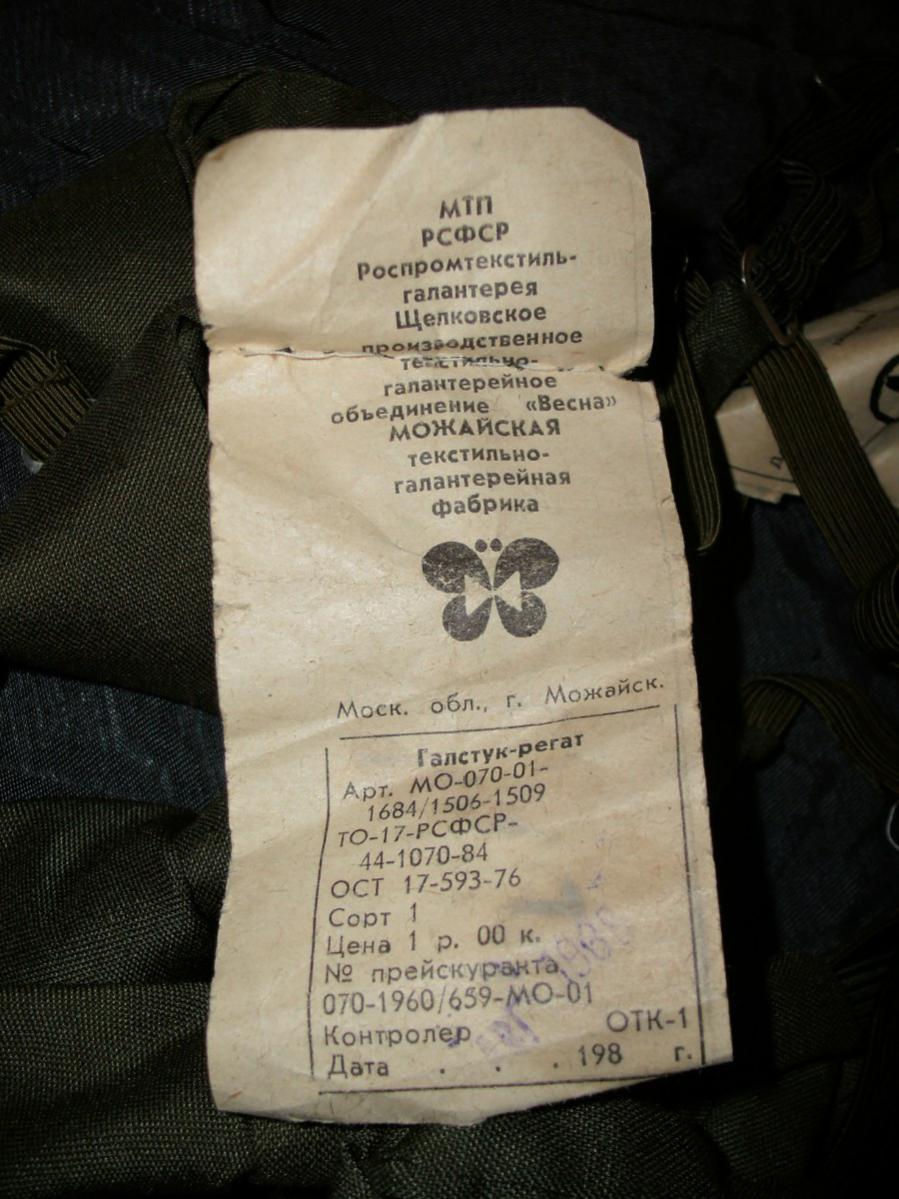 МТП
РСФСР
Роспромтекстиль-
галантерея
Щелковское
производственное
текстильно-
галантерейное
объединение «Весна»
МОЖАЙСКАЯ
текстильно-
галантерейная
фабрика
Моск. обл., г. Можайск.
Галстук-регат
Арт. МО-070-01-
1684/1506-1509
ТО-17-РСФСР-
44-1070-84
ОСТ 17-593-76
Сорт 1
Цена 1 р. 00 к.
№ прейскуранта
070-1960/659-МО-01
Контролер ОТК-1
Дата . . . 198 г.